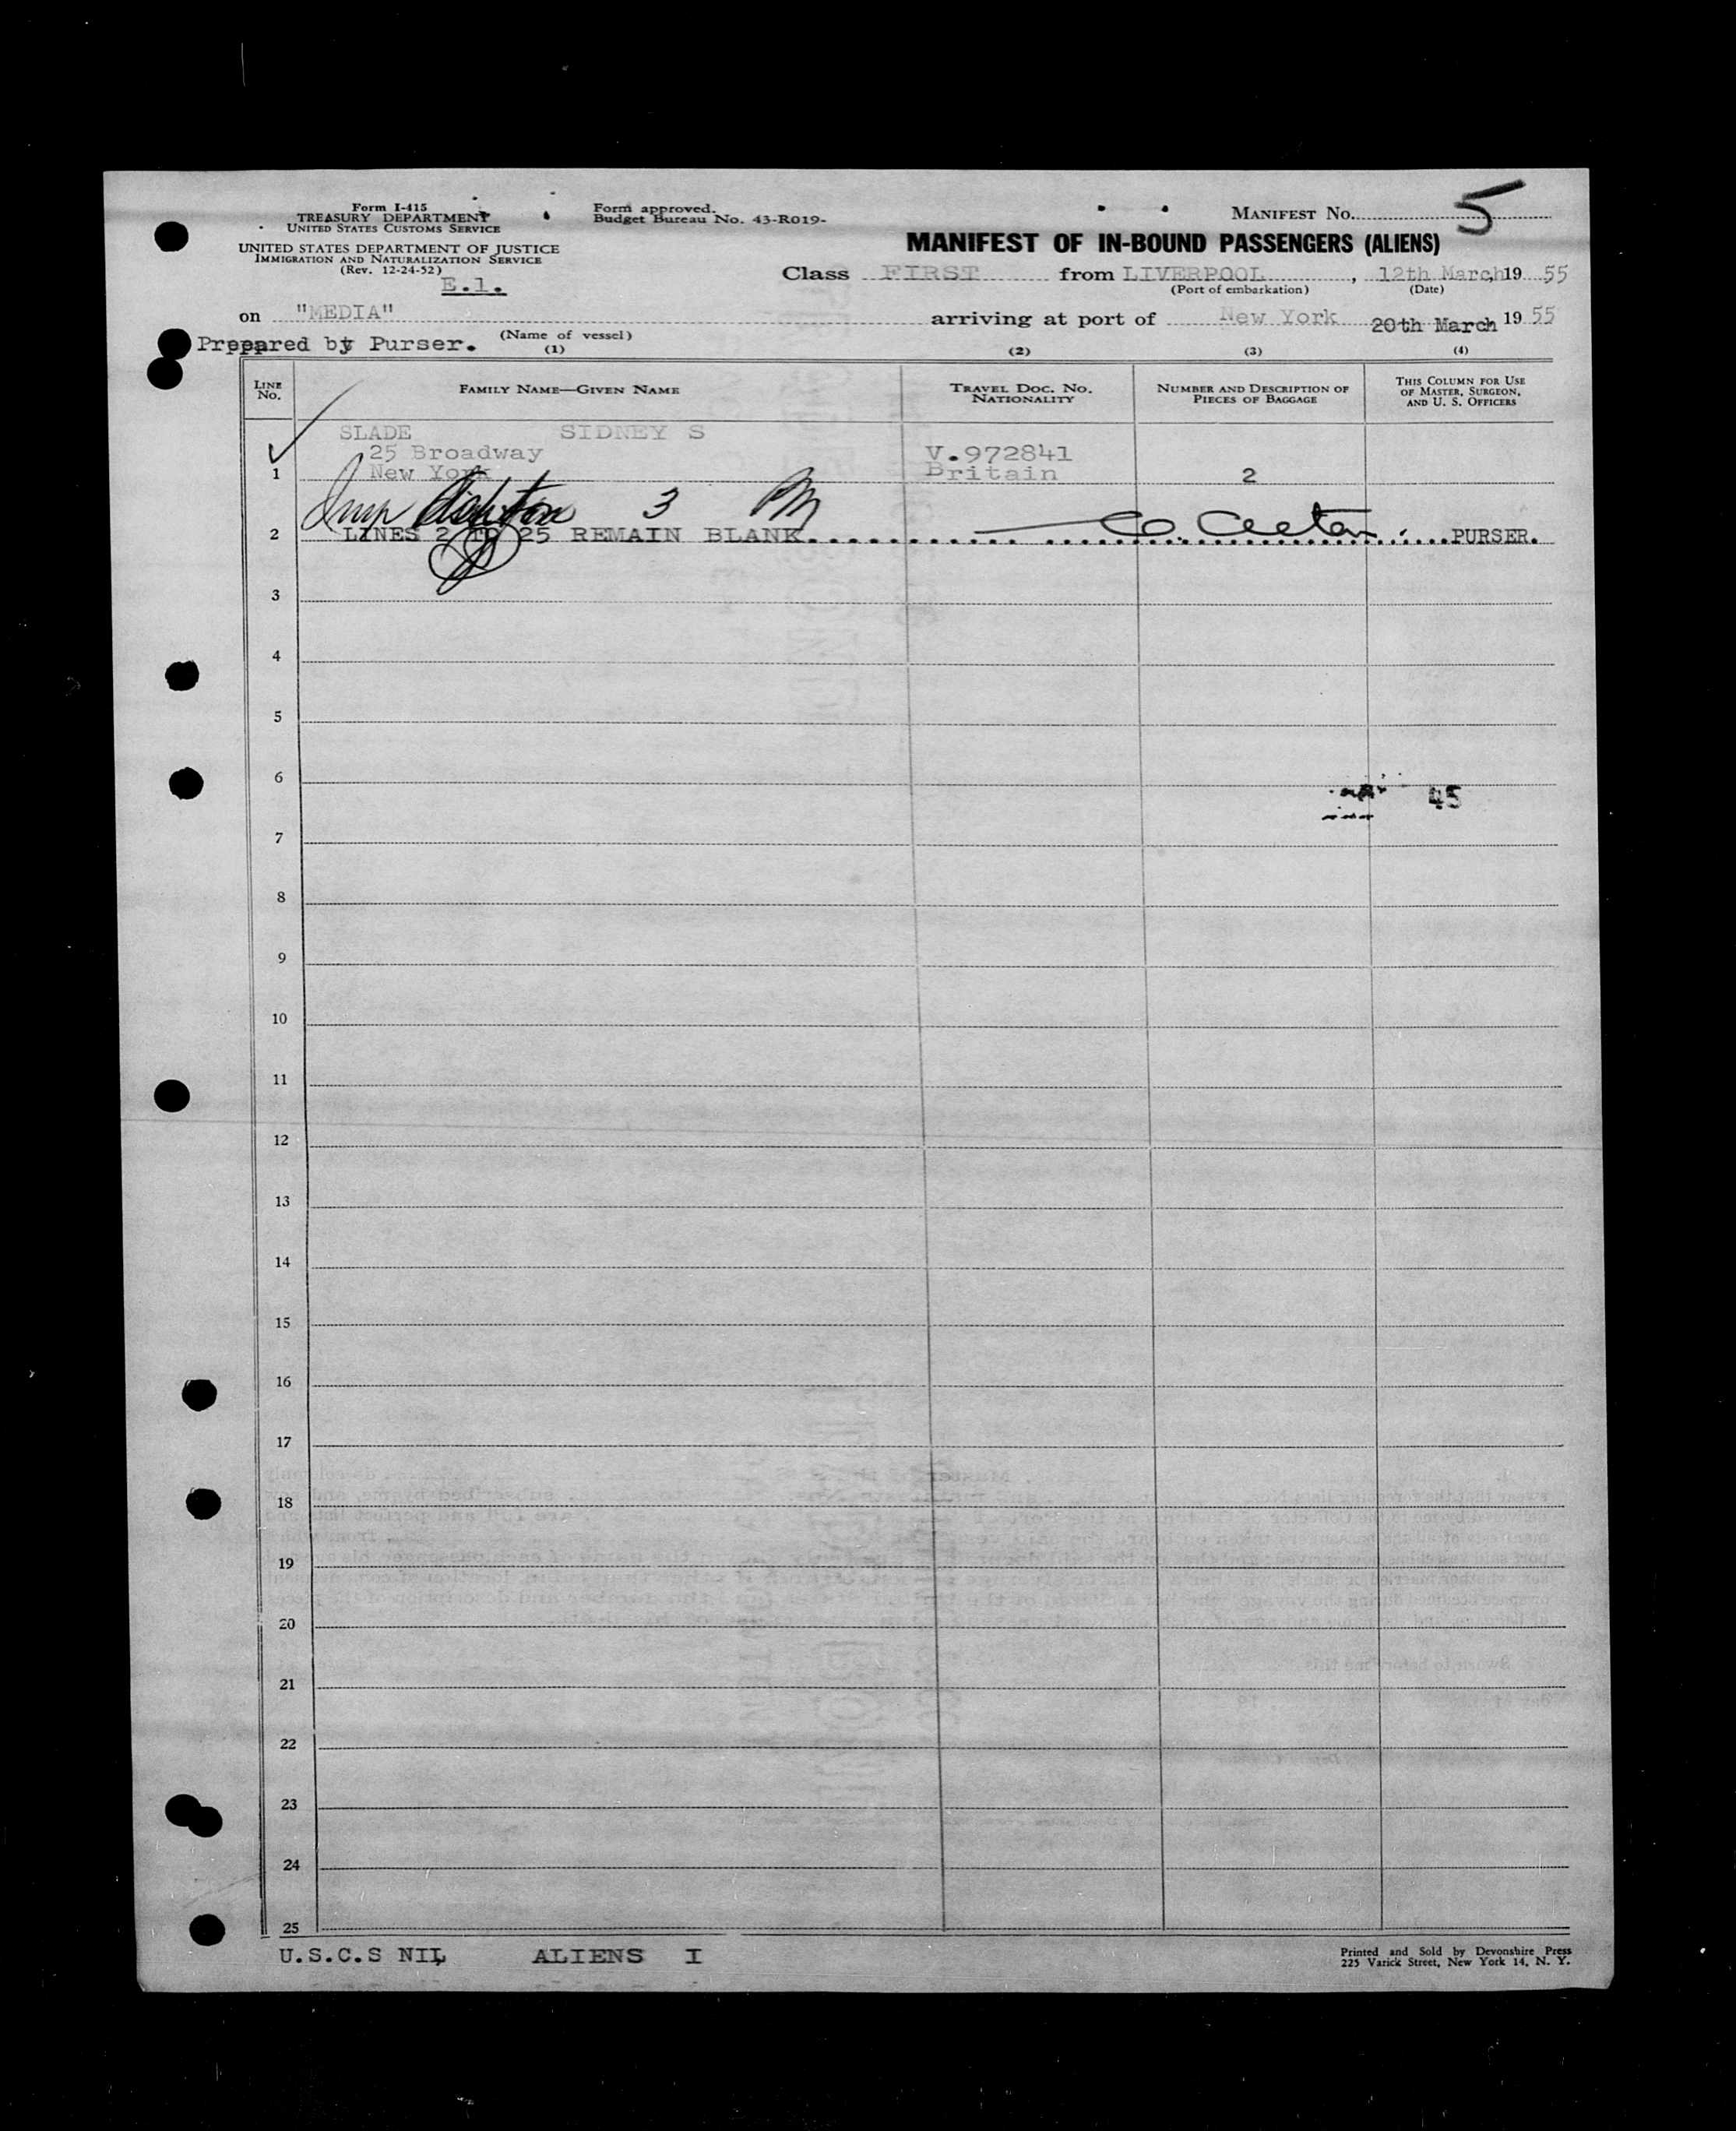 Form I-415
TREASURY DEPARTMENT
UNITED STATES CUSTOMS SERVICE
UNITED STATES DEPARTMENT OF JUSTICE
IMMIGRATION AND NATURALIZATION SERVICE
(Rev. 12-24-52)
E.1.
Form approved.
Budget Bureau No. 43-R019-
MANIFEST NO. 5
MANIFEST OF IN-BOUND PASSENGERS (ALIENS)
Class FIRST from LIVERPOOL, 12th March, 19 55
(Port of embarkation) (Date)
on "MEDIA" arriving at port of New York 20th March 19 55
(Name of vessel)
Prepared by Purser.
(1) (2) (3) (4)
LINE No. FAMILY NAME—GIVEN NAME TRAVEL DOC. NO. NATIONALITY NUMBER AND DESCRIPTION OF PIECES OF BAGGAGE THIS COLUMN FOR USE OF MASTER, SURGEON, AND U. S. OFFICERS
SLADE SIDNEY S
25 Broadway V.972841
1 New York Britain 2
3
2 LINES 2 TO 25 REMAIN BLANK. PURSER.
3
4
5
6
45
7
8
9
10
11
12
13
14
15
16
17
18
19
20
21
22
23
24
25
U.S.C.S NIL ALIENS I
Printed and Sold by Devonshire Press
225 Varick Street, New York 14, N. Y.